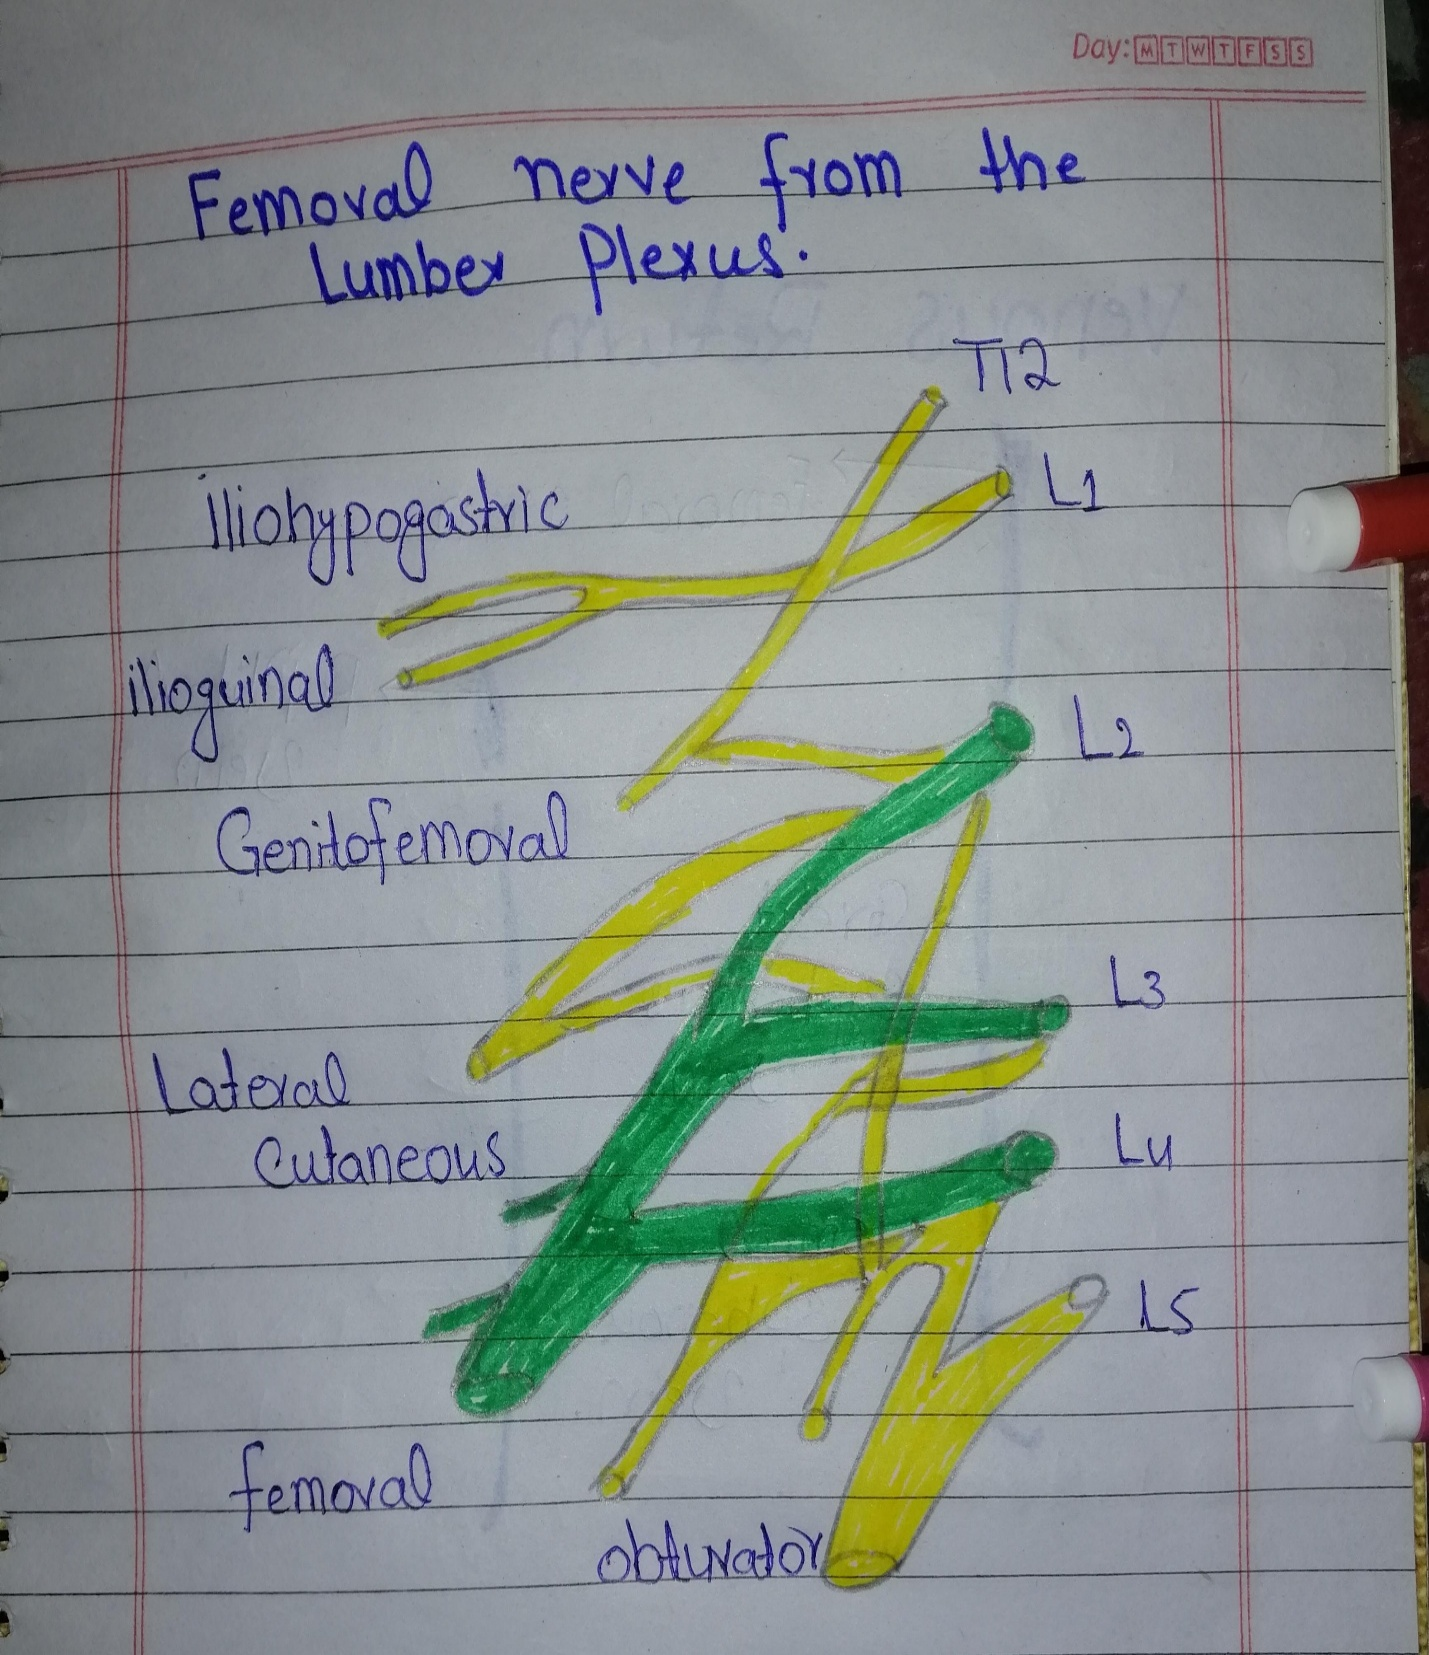 Day: M T W T F S S
Femoral nerve from the
Lumber Plexus.
T12
L1
iliohypogastric
ilioguinal
L2
Genitofemoral
L3
Lateral
Cutaneous
L4
L5
femoral
obturator